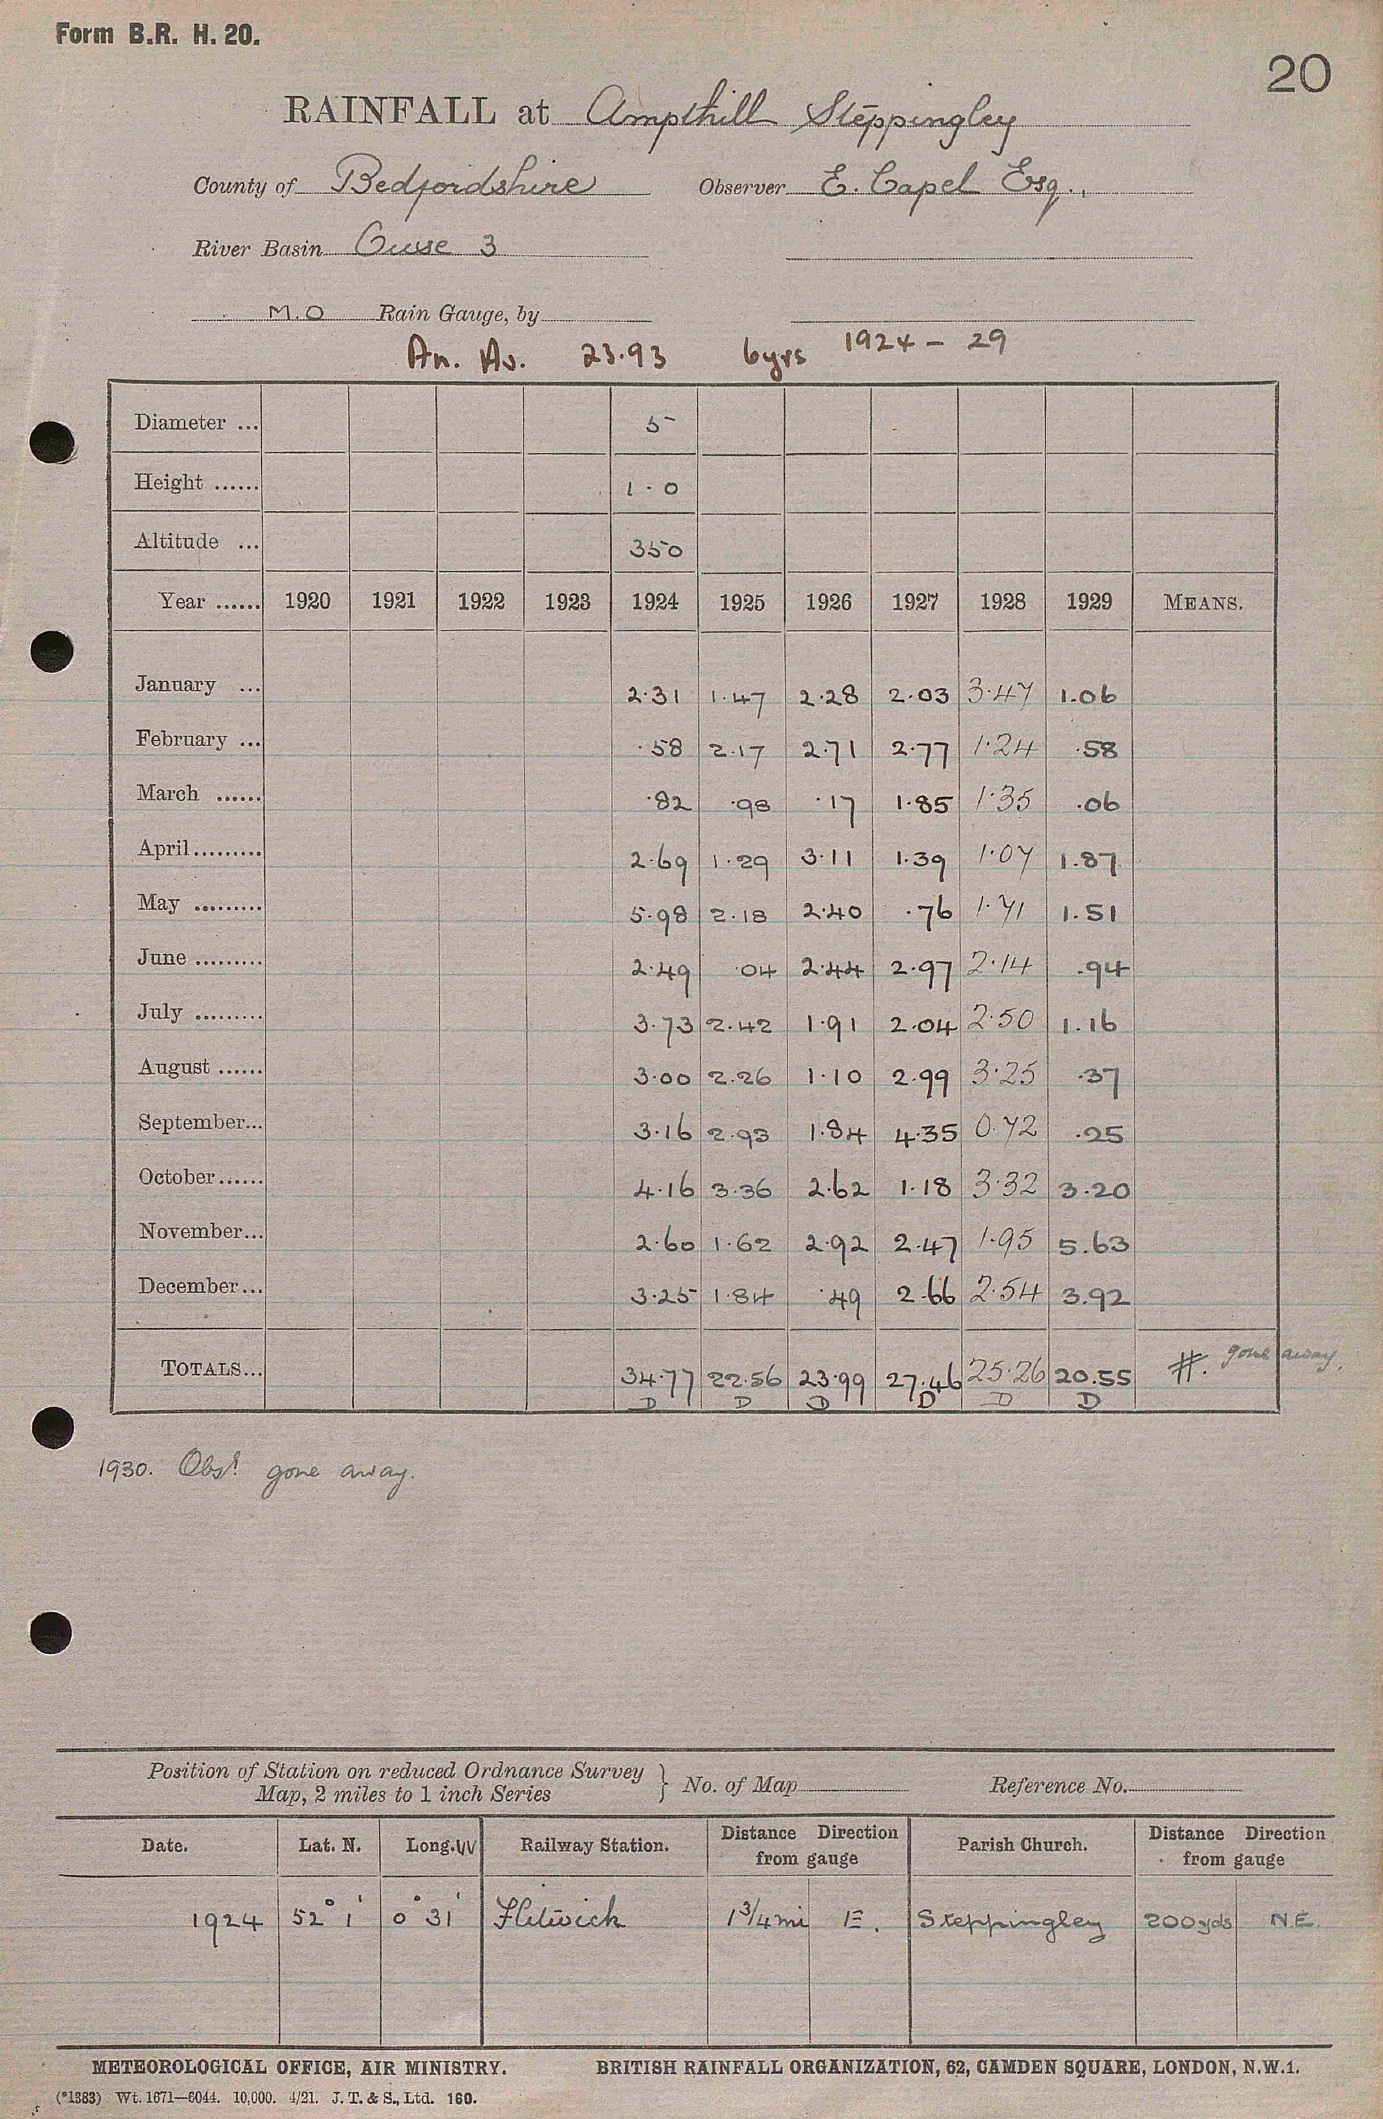 Form B.R. H. 20.
20
RAINFALL at Ampthill Steppingley
County of Bedfordshire Observer E. Capel Esq.,
River Basin Ouse 3
M.O Rain Gauge, by
An. Av. 23.93 6yrs 1924 – 29
Diameter ... 5
Height ...... 1.0
Altitude ... 350
Year ...... 1920 1921 1922 1923 1924 1925 1926 1927 1928 1929 MEANS.
January ... 2.31 1.47 2.28 2.03 3.47 1.06
February ... .58 2.17 2.71 2.77 1.24 .58
March ...... .82 .98 .17 1.85 1.35 .06
April ......... 2.69 1.29 3.11 1.39 1.07 1.87
May ......... 5.98 2.18 2.40 .76 1.71 1.51
June ......... 2.49 .04 2.44 2.97 2.14 .94
July ......... 3.73 2.42 1.91 2.04 2.50 1.16
August ...... 3.00 2.26 1.10 2.99 3.25 .37
September... 3.16 2.93 1.84 4.35 0.72 .25
October...... 4.16 3.36 2.62 1.18 3.32 3.20
November... 2.60 1.62 2.92 2.47 1.95 5.63
December... 3.25 1.84 .49 2.66 2.54 3.92
TOTALS... 34.77 22.56 23.99 27.46 25.26 20.55 #. gone away.
D D D D D D
1930. Obsr. gone away.
Position of Station on reduced Ordnance Survey
Map, 2 miles to 1 inch Series } No. of Map Reference No.
Date. Lat. N. Long. W Railway Station. Distance Direction from gauge Parish Church. Distance Direction from gauge
1924 52° 1' 0° 31' Flitwick 1¾ mi E. Steppingley 200 yds N.E.
METEOROLOGICAL OFFICE, AIR MINISTRY. BRITISH RAINFALL ORGANIZATION, 62, CAMDEN SQUARE, LONDON, N.W.1.
(*1383) Wt. 1671—6044. 10,000. 4/21. J. T. & S., Ltd. 160.